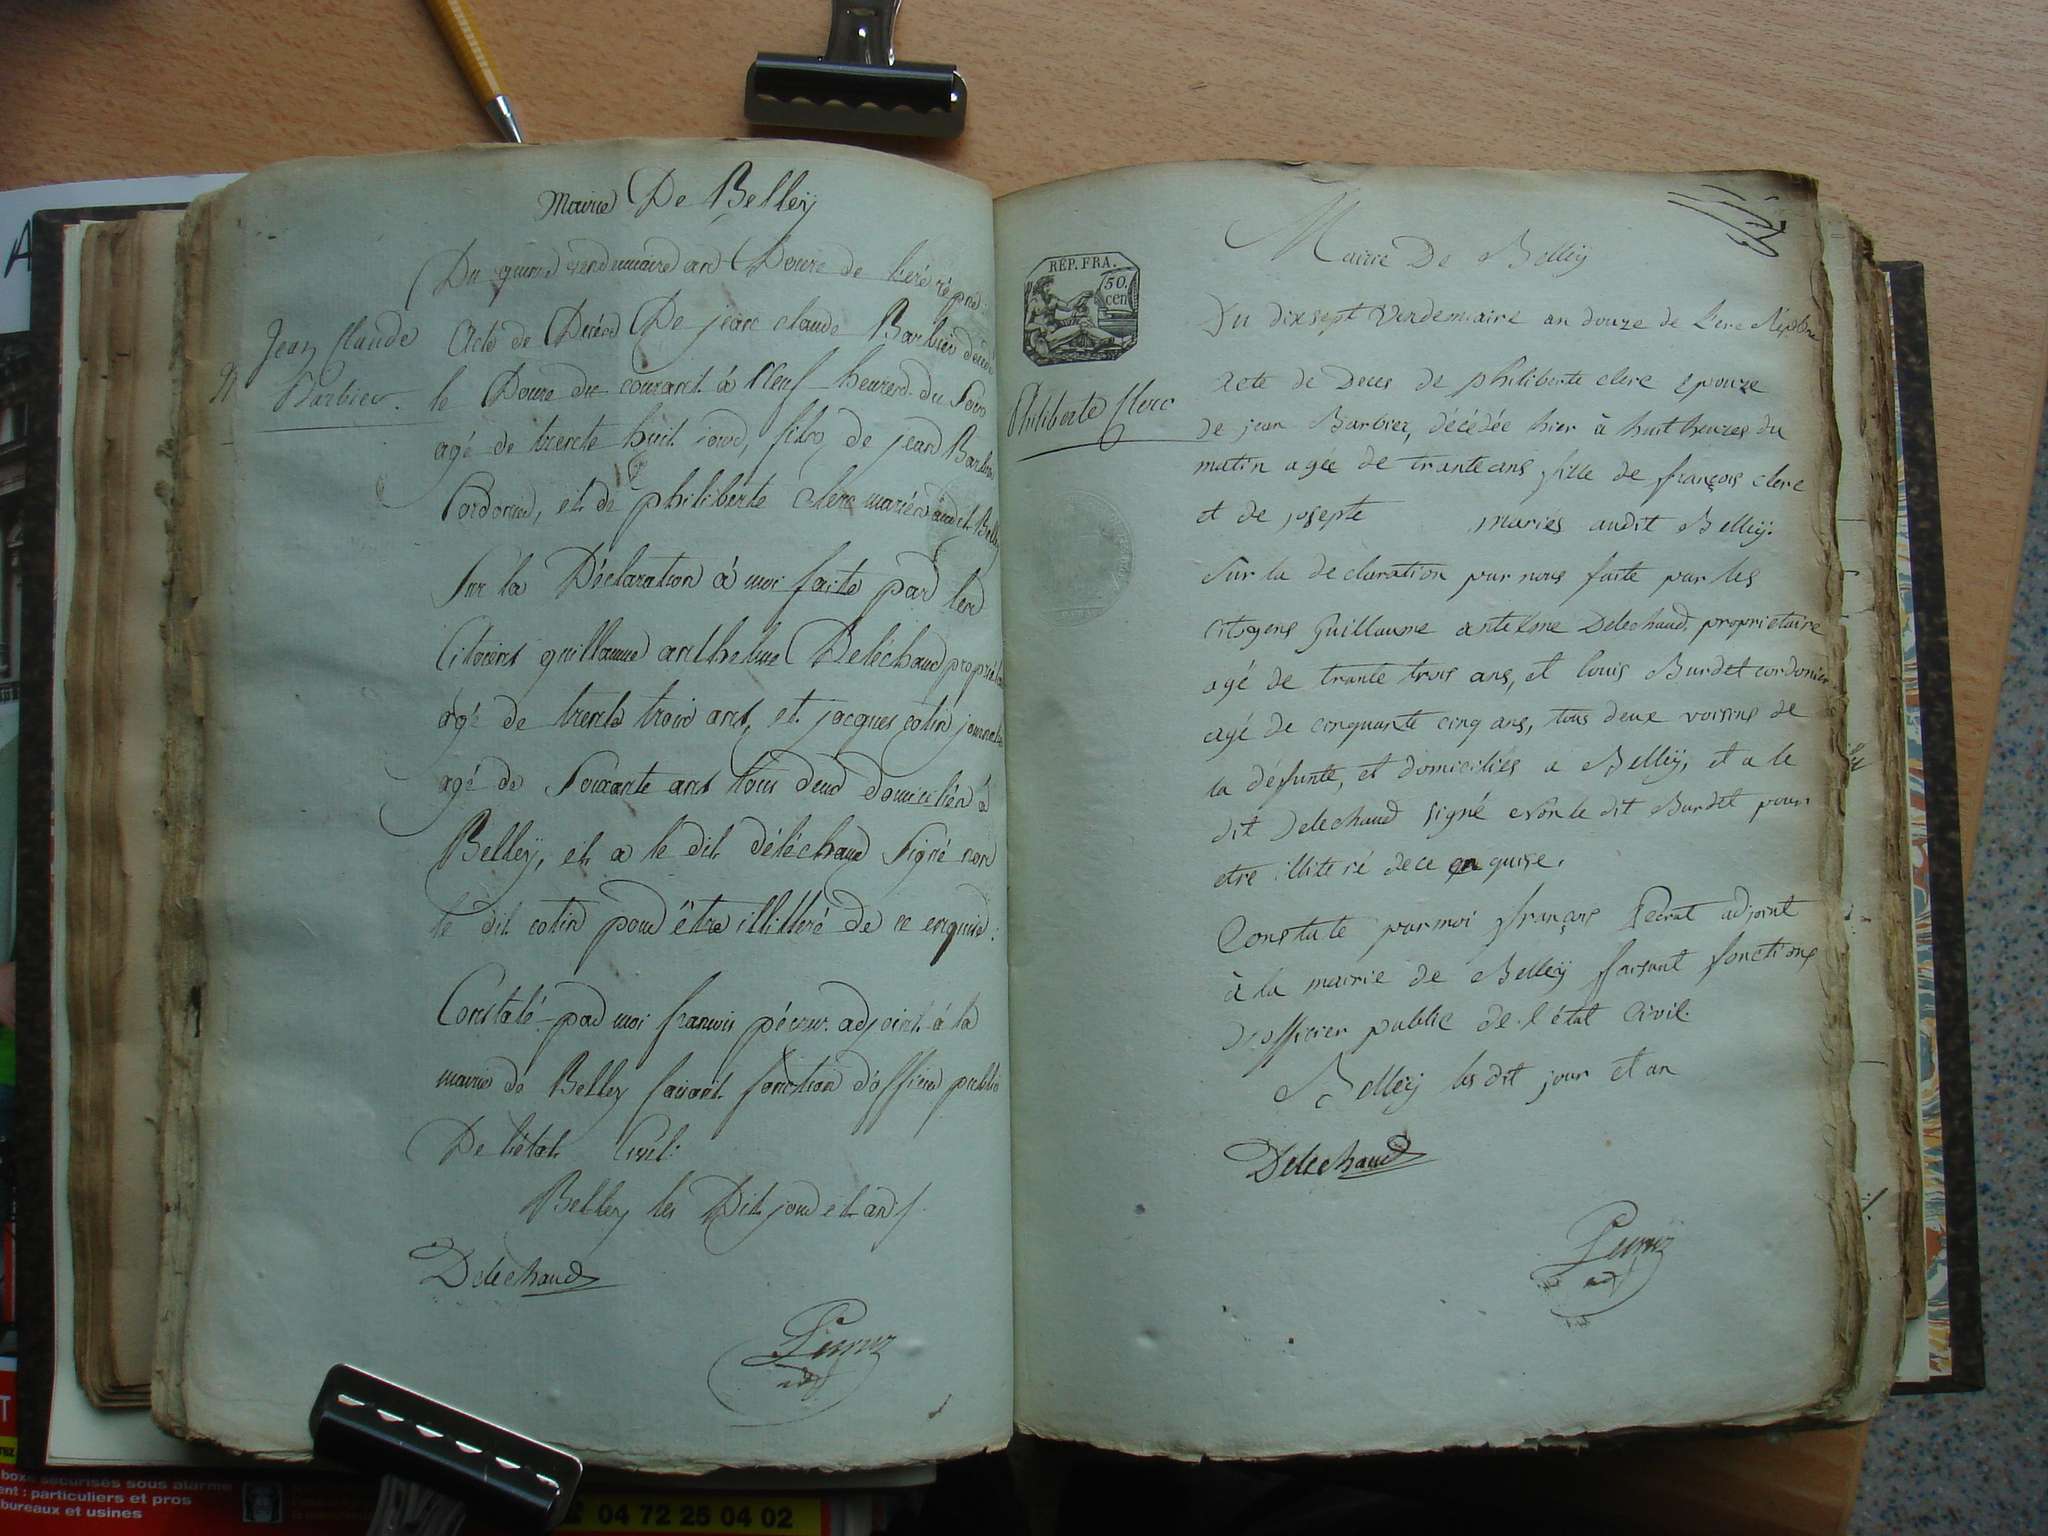 Mairie De Belleÿ
Du quinze vendemiaire an Douze de l'ere répne.
Jean Claude
Barbier.
Acte de Décés De jean claude Barbier décédé
le Douze du courant à Neuf heures du Soir
agé de trente huit jours, fils de jean Barbier
Cordonier, et de philiberte Clerc mariés audit Belley
Sur la Déclaration à moi faite par les
Citoiens guillaume anthelme Deléchaud propriétaire
agé de trente trois ans, et jacques cotin journalier
agé de Soixante ans tous deux domiciliés à
Belleÿ, et a le dit déléchaud Signé non
le dit cotin pour être illitteré de ce enquis.
Constaté par moi francois pécrut adjoint à la
mairie de Belley faisant fonction d'officier public
De l'état Civil.
Belley les Dit jour et an
Delechaud
adj
RÉP. FRA.
50.
cen
Philiberte Clerc
Mairie De Belleÿ
Du dixsept Vendemiaire an douze de L'ere Répbne
Acte de Deces de philiberte clerc epouze
de jean Barbier, décédée hier à huit heures du
matin agée de trante ans, fille de françois clerc
et de josepte mariés audit Belleÿ.
Sur la declaration par nous faite par les
citoyens Guillaume antelme Delechaud, proprietaire
agé de trante trois ans, et louis Burdet cordonier
agé de cinquante cinq ans, tous deux voisins de
la défunte, et domiciliés a Belleÿ, et a le
dit Delechaud signé non le dit Burdet pour
etre illiteré de ce en quise.
Constate par moi françois Pecrut adjoint
à la mairie de Belleÿ faisant fonctions
d'officier public de l'état Civil.
Belleÿ les dit jour et an
Delechaud
adj
boxs sécurisés sous alarme
ent : particuliers et pros
bureaux et usines
04 72 25 04 02